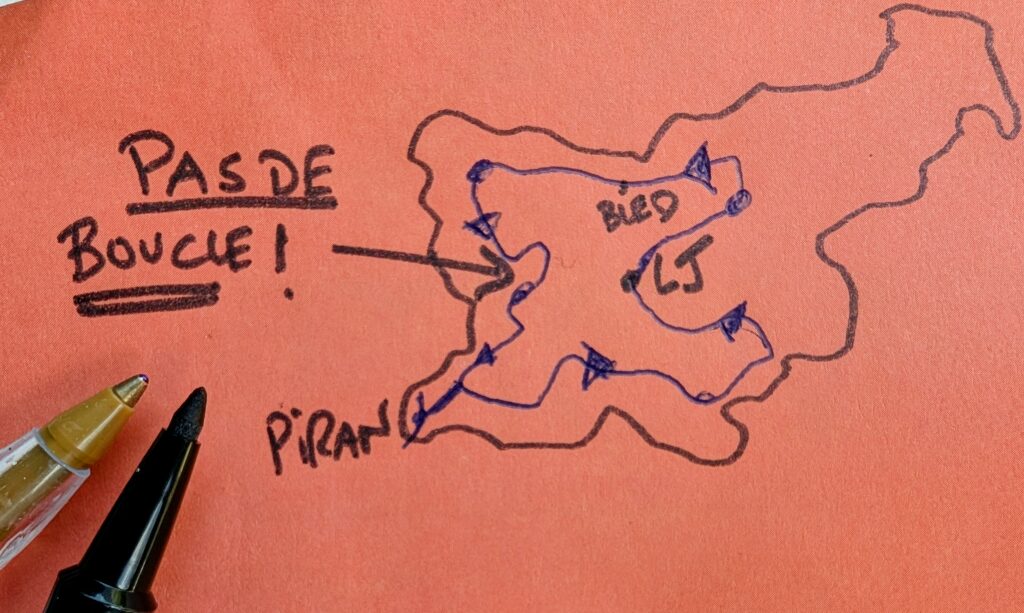 PAS DE
BOUCLE !
BLED
LJ
PiRAN